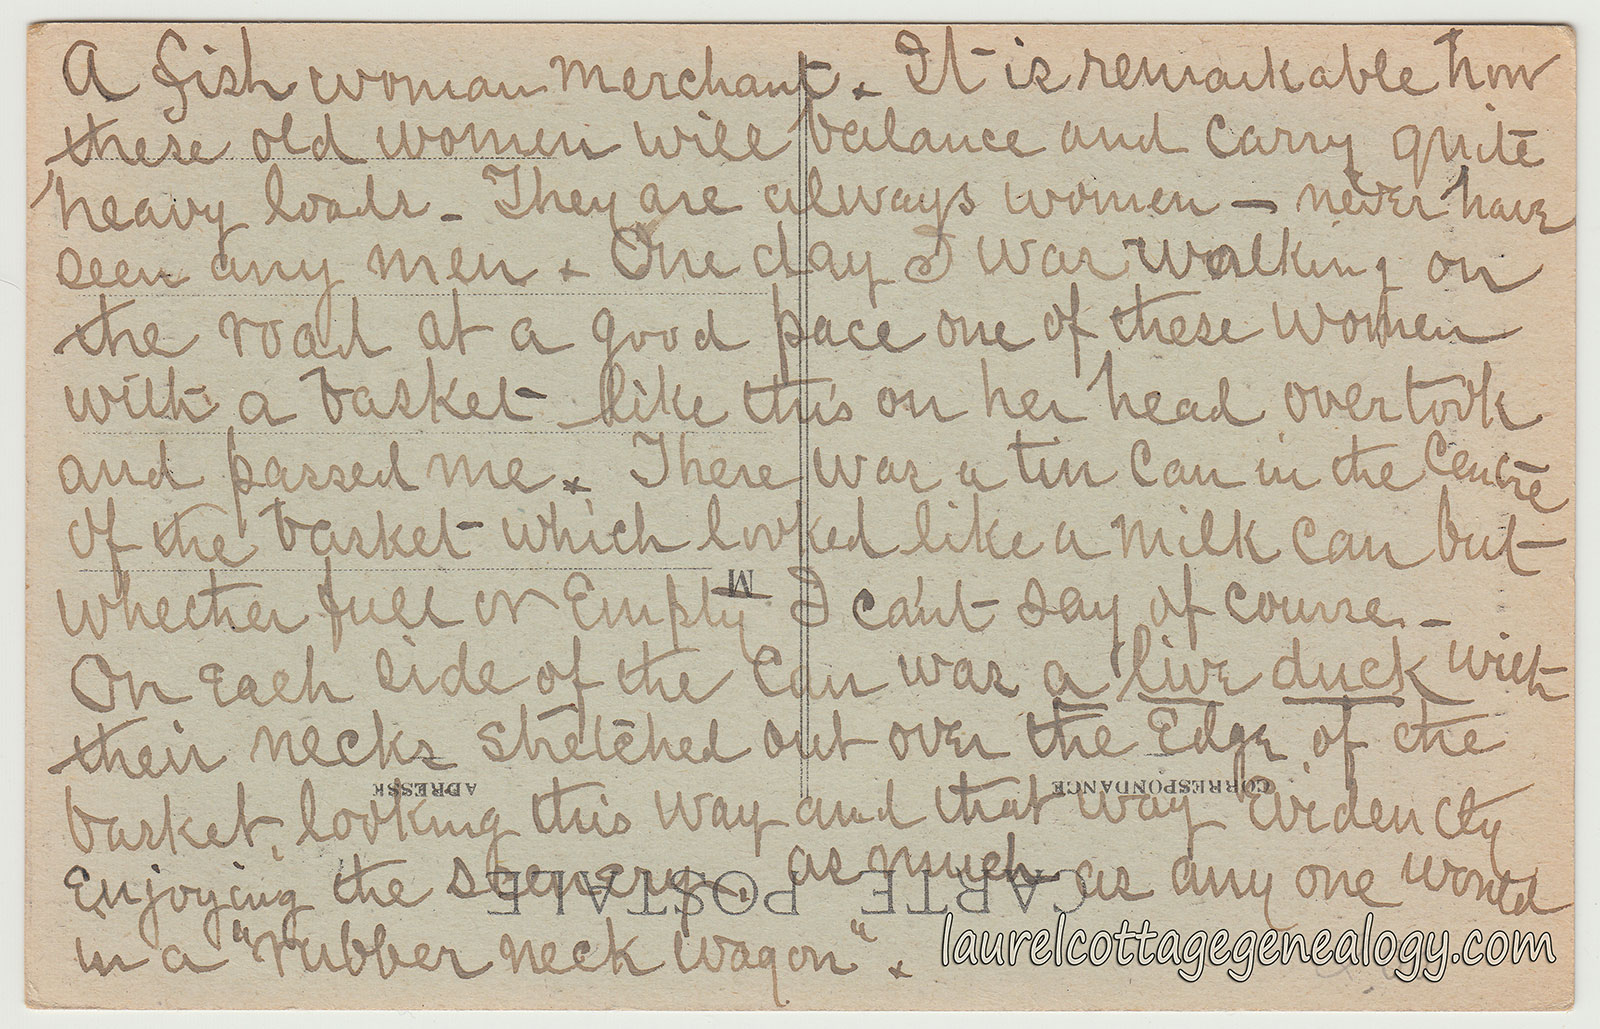 A fish woman merchant. It is remarkable how
these old women will balance and carry quite
heavy loads - They are always women - never have
seen any men. One day I was walking on
the road at a good pace one of these women
with a basket like this on her head overtook
and passed me. There was a tin can in the centre
of the basket which looked like a milk can but
M
whether full or empty I can't say of course. -
On each side of the can was a live duck with
their necks stretched out over the edge of the
ADRESSE CORRESPONDANCE
basket, looking this way and that way evidently
enjoying the scenery as much as any one would
CARTE POSTALE
in a "rubber neck wagon".
laurelcottagegenealogy.com